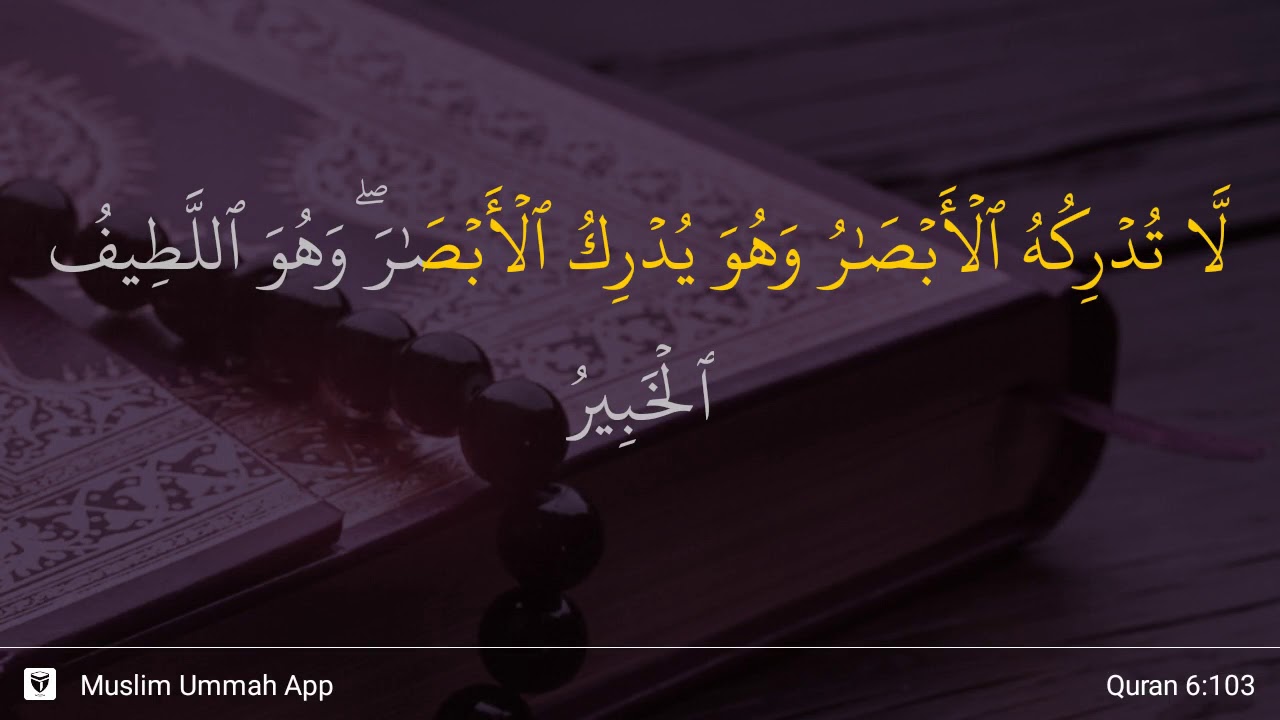 لَّا تُدْرِكُهُ ٱلْأَبْصَـٰرُ وَهُوَ يُدْرِكُ ٱلْأَبْصَـٰرَ ۖ وَهُوَ ٱللَّطِيفُ
ٱلْخَبِيرُ
Muslim Ummah App
Quran 6:103